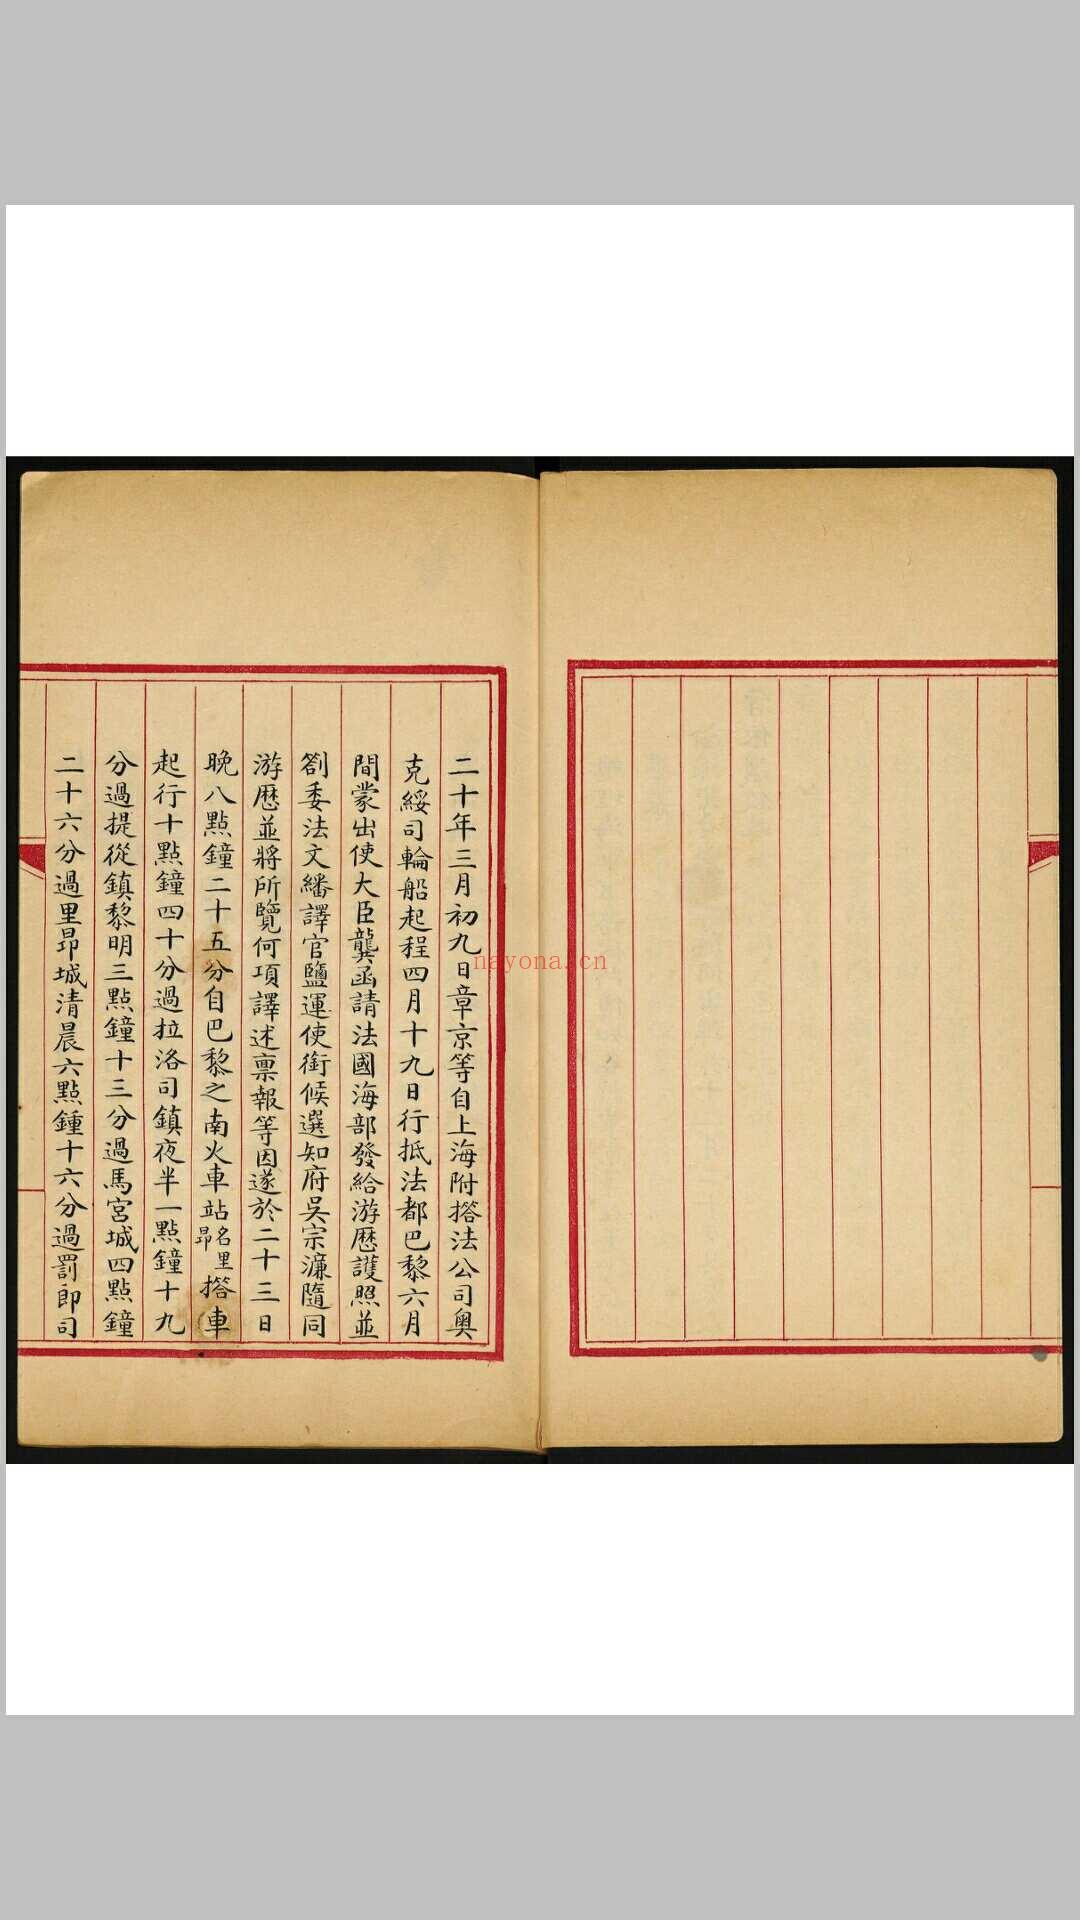 二十年三月初九日章京等自上海附搭法公司奧
克綏司輪船起程四月十九日行抵法都巴黎六月
間蒙出使大臣龔函請法國海部發給游歷護照並
劄委法文繙譯官鹽運使銜候選知府吳宗濂隨同
游歷並將所覽何項譯述稟報等因遂於二十三日
晚八點鐘二十五分自巴黎之南火車站名里昂搭車
起行十點鐘四十分過拉洛司鎮夜半一點鐘十九
分過提從鎮黎明三點鐘十三分過馬宮城四點鐘
二十六分過里昂城清晨六點鍾十六分過罰郎司
nayona.cn